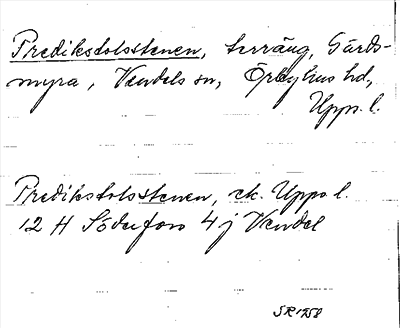 Predikstolsstenen, terräng, Gårds-
myra, Vendels sn, Örbyhus hd,
Upps. l.
Predikstolsstenen, ek. Upps l.
12 H Söderfors 4 j Vendel